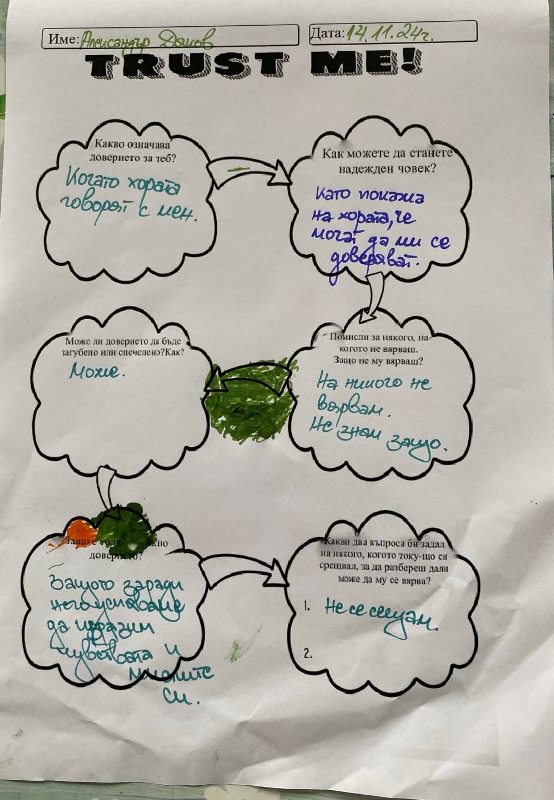 Име: Александър Даков
Дата: 14.11.24г.
TRUST ME!
Какво означава
доверието за теб?
Когато хората
говорят с мен.
Как можете да станете
надежден човек?
Като покажа
на хората, че
могат да ми се
доверяват.
Може ли доверието да бъде
загубено или спечелено?Как?
Може.
Помисли за някого, на
когото не вярваш.
Защо не му вярваш?
На никого не
вярвам.
Не знам защо.
Защо е
доверието?
Защото заради
него успяваме
да изразим
чувствата и
мислите
си.
Какви два въпроса би задал
на някого, когото току-що си
срещнал, за да разбереш дали
може да му се вярва?
1. Не се сещам.
2.